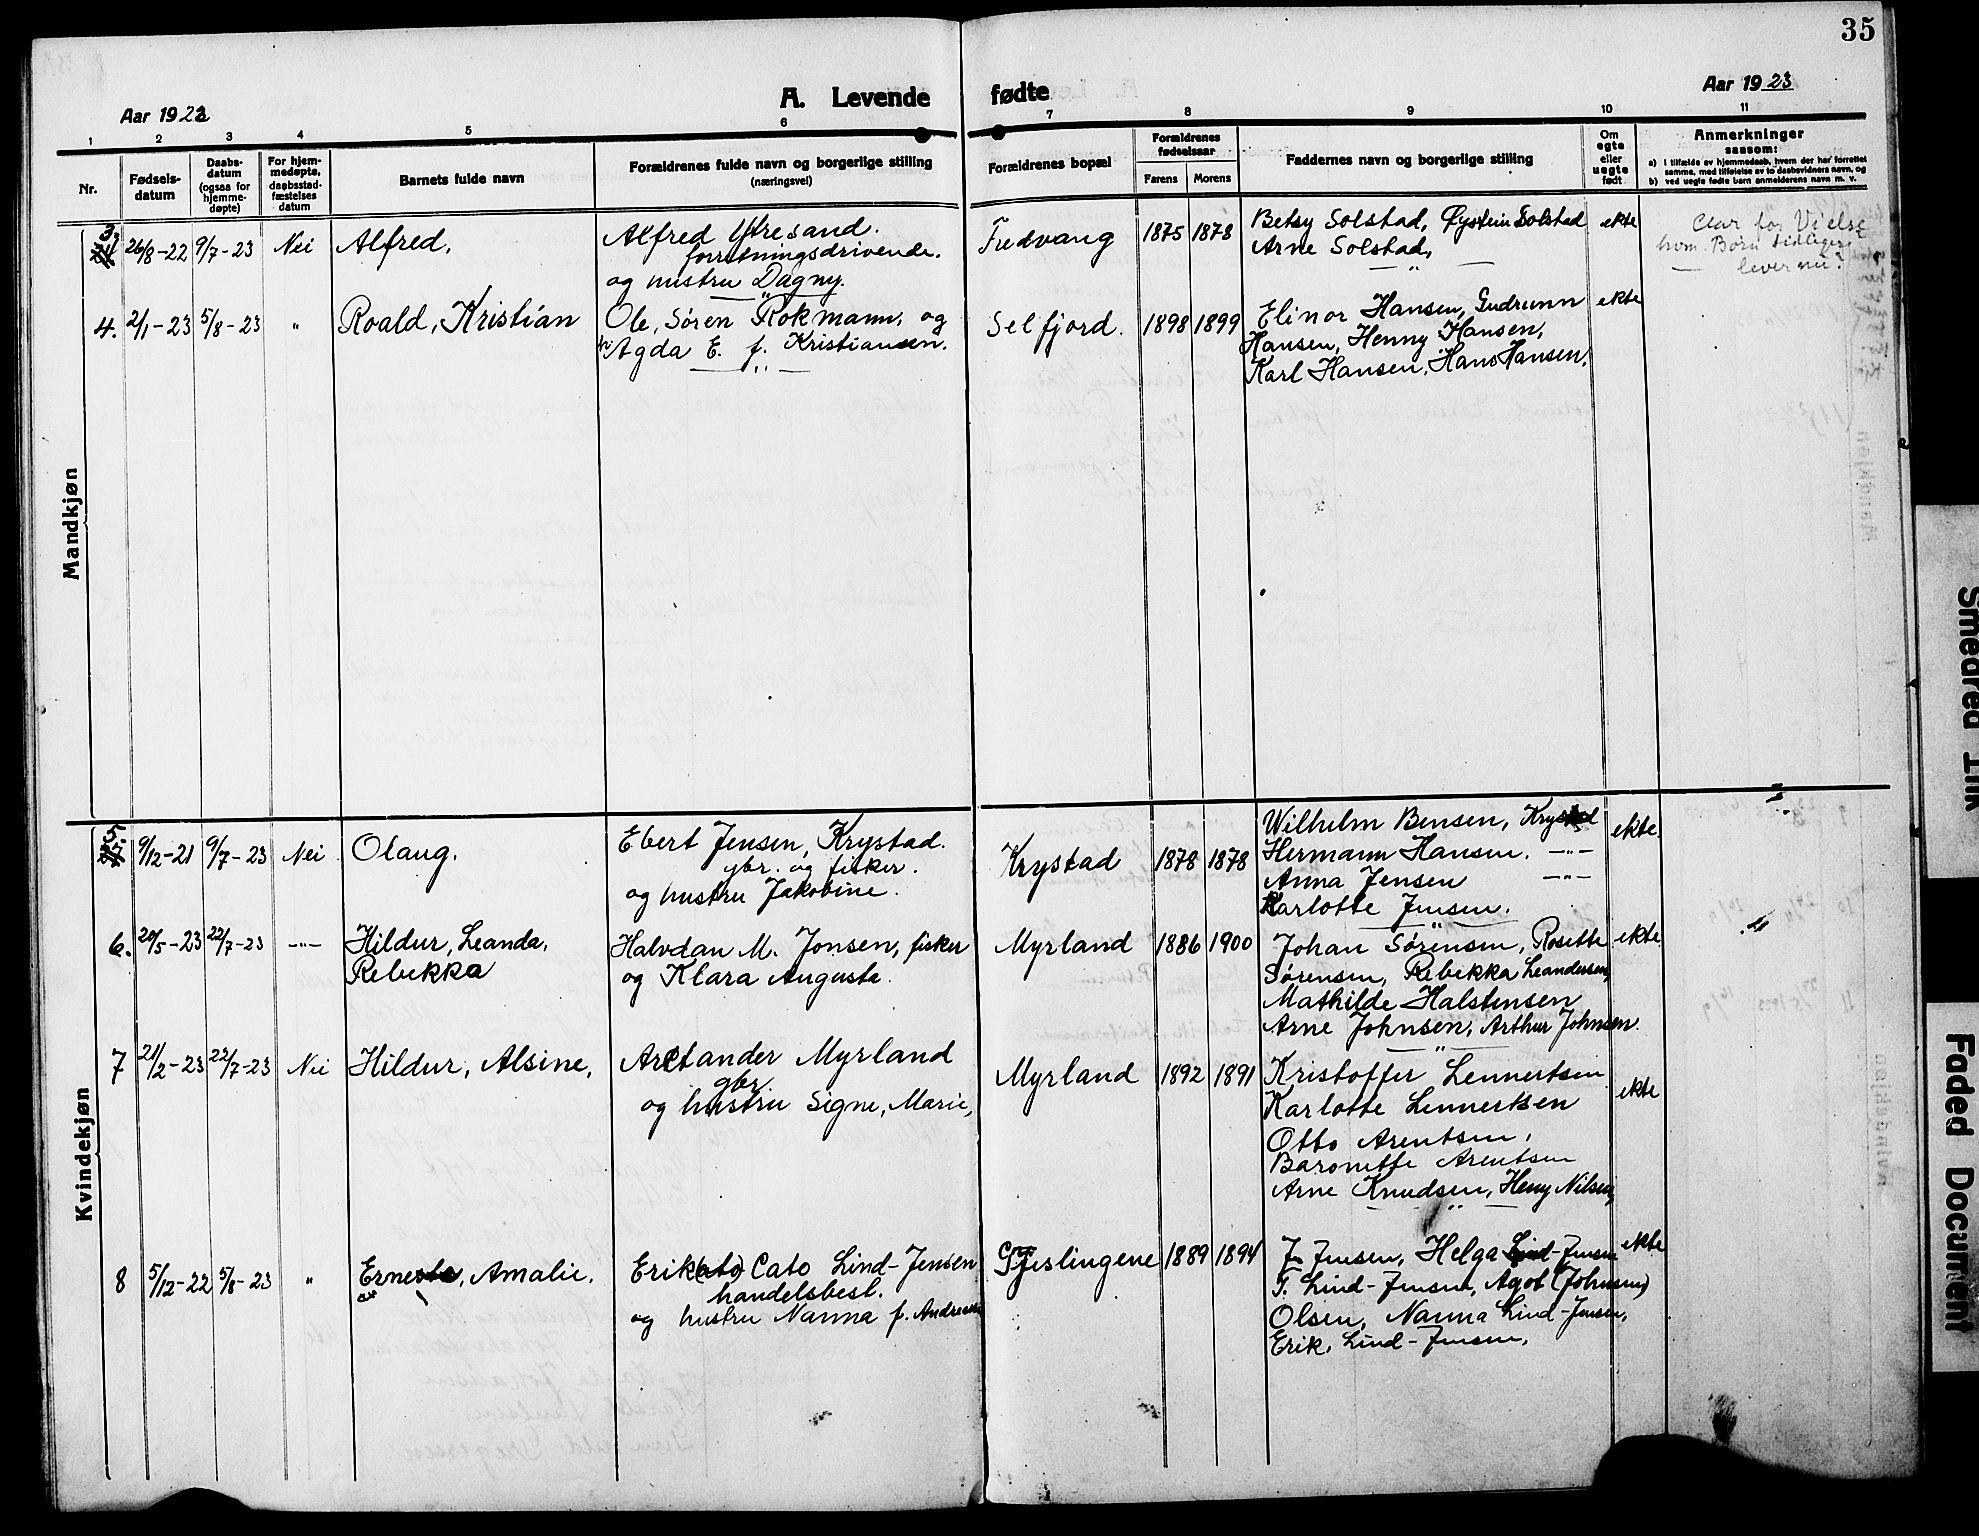 35
Aar 1923
A. Levende fødte
Aar 1923
1 2 3 4 5 6 7 8 9 10 11
Nr.
Fødsels-
datum
Daabs-
datum
(ogsaa for
hjemme-
døpte)
For hjem-
medøpte,
daabsstad-
fæstelses
datum
Barnets fulde navn
Forældrenes fulde navn og borgerlige stilling
(næringsvei)
Forældrenes bopæl
Forældrenes
fødselsaar
Farens Morens
Faddernes navn og borgerlige stilling
Om
egte
eller
uegte
født
Anmerkninger
saasom:
a) i tilfælde av hjemmedaab, hvem der har forrettet
samme, med tilføielse av to daabsvidners navn, og
b) ved uegte fødte barn anmelderens navn m. v.
Mandkjøn
3. 26/8-22 9/7-23 Nei Alfred.
Alfred Ytresand.
forretningsdrivende.
og hustru Dagny.
Fredvang 1875 1878
Betsy Solstad, Øystein Solstad
Arne Solstad,
ekte
Aar for Vielse
hvm. Børn tidligere
lever nu?
4. 2/1-23 5/8-23 " Roald, Kristian
Ole, Søren Rokmann, og
h. Agda E. f. Kristiansen.
Selfjord. 1898 1899
Elinor Hansen, Gudrunn
Hansen, Henny Hansen,
Karl Hansen, Hans Hansen.
ekte
Kvindekjøn
5. 9/12-21 9/7-23 Nei Olaug.
Ebert Jensen, Krystad.
gbr. og fisker.
og hustru Jakobine.
Krystad 1878 1878
Wilhelm Bensen, Krystad
Hermann Hansen. -"-
Anna Jensen -"-
Karlotte Jensen.
ekte
6. 20/5-23 22/7-23 -"- Hildur, Leanda,
Rebekka
Halvdan M. Jonsen, fisker
og Klara Augusta.
Myrland 1886 1900
Johan Sørensen, Rosette
Sørensen, Rebekka Leandersen,
Mathilde Halstensen
Arne Johnsen, Arthur Johnsen.
ekte
7 21/2-23 22/7-23 Nei Hildur, Alsine,
Arctander Myrland
gbr.
og hustru Signe, Marie,
Myrland 1892 1891
Kristoffer Lennertsen
Karlotte Lennertsen
Otto Arentsen,
Baronette Arentsen
Arne Knudsen, Henny Nilsen,
ekte
8 5/12-22 5/8-23 " Ernesta, Amalie.
Erik (Cato) Cato Lind-Jensen
handelsbest.
og hustru Nanna f. Andresen
Gjeslingene 1889 1894
J. Jensen, Helga Lind-Jensen
T. Lind-Jensen, Agot (Johnsen)
Olsen, Nanna Lind-Jensen,
Erik, Lind-Jensen,
ekte
Smeared Ink
Faded Document